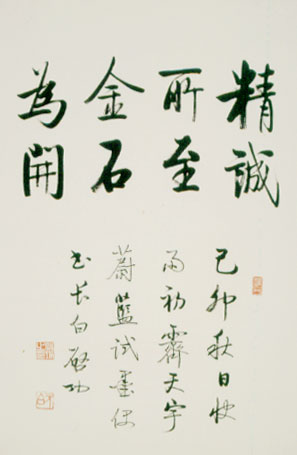 精誠
所至
金石
為開
己卯秋日快
雨初霽天宇
蔚藍試墨便
書長白啓功